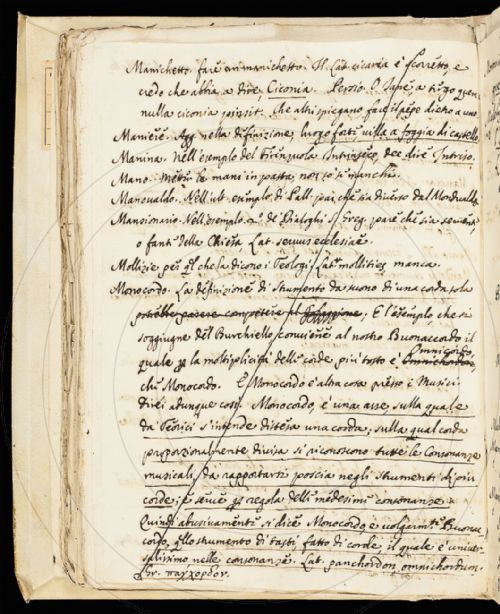 Manichetto. fare un manichetto. Il Lat. cicania è scorretto, e
credo che abbia a dire Ciconia. Persio. O Jane a tergo quem
nulla ciconia pinsit. Che altri spiegano far il pepe dietro a uno.
Maniere. Agg. nella difinizione, luogo forte villa a foggia di castello.
Manina. Nell'esempio del Firenzuola Intrinseco, dee dire Intriso.
Mano. Metter le mani in pasta, non so se manchi.
Manovaldo. Nell'ult. esempio di Pall. par, che sia diverso dal Mondualdo
Mansionario. Nell'esempio 2º. de' Dialoghi S. Greg. pare che sia servente,
o fante della Chiesa Lat. servus ecclesiae.
Mollizie per ql che la dicono i Teologi, Latº mollities manca.
Monocordo. La difinizione di strumento da suono di una corda sola
potrebbe parere competere al; E l'esempio, che si
soggiugne del Burchiello conviene al nostro Buonaccordo il
quale per la moltiplicità delle corde, più tosto è Omnicordo,
che Monocordo. E Monocordo è altra cosa presso i Musici
Direi adunque così. Monocordo, è una asse, sulla quale
da Teorici s'intende distesa una corda, sulla qual corda
proporzionalmente divisa si riconoscono tutte le Consonanze
musicali, da rapportarsi poscia negli strumenti di più
corde; e serve per regola delle medesime consonanze.
Quindi abusivamente si dice Monocordo, e volgarmte Buonac
cordo, qllo strumento di tasti fatto di corde, il quale è univer
salissimo nelle consonanze. Lat. panchordon, omnichordum.
Gr. παγχορδον.